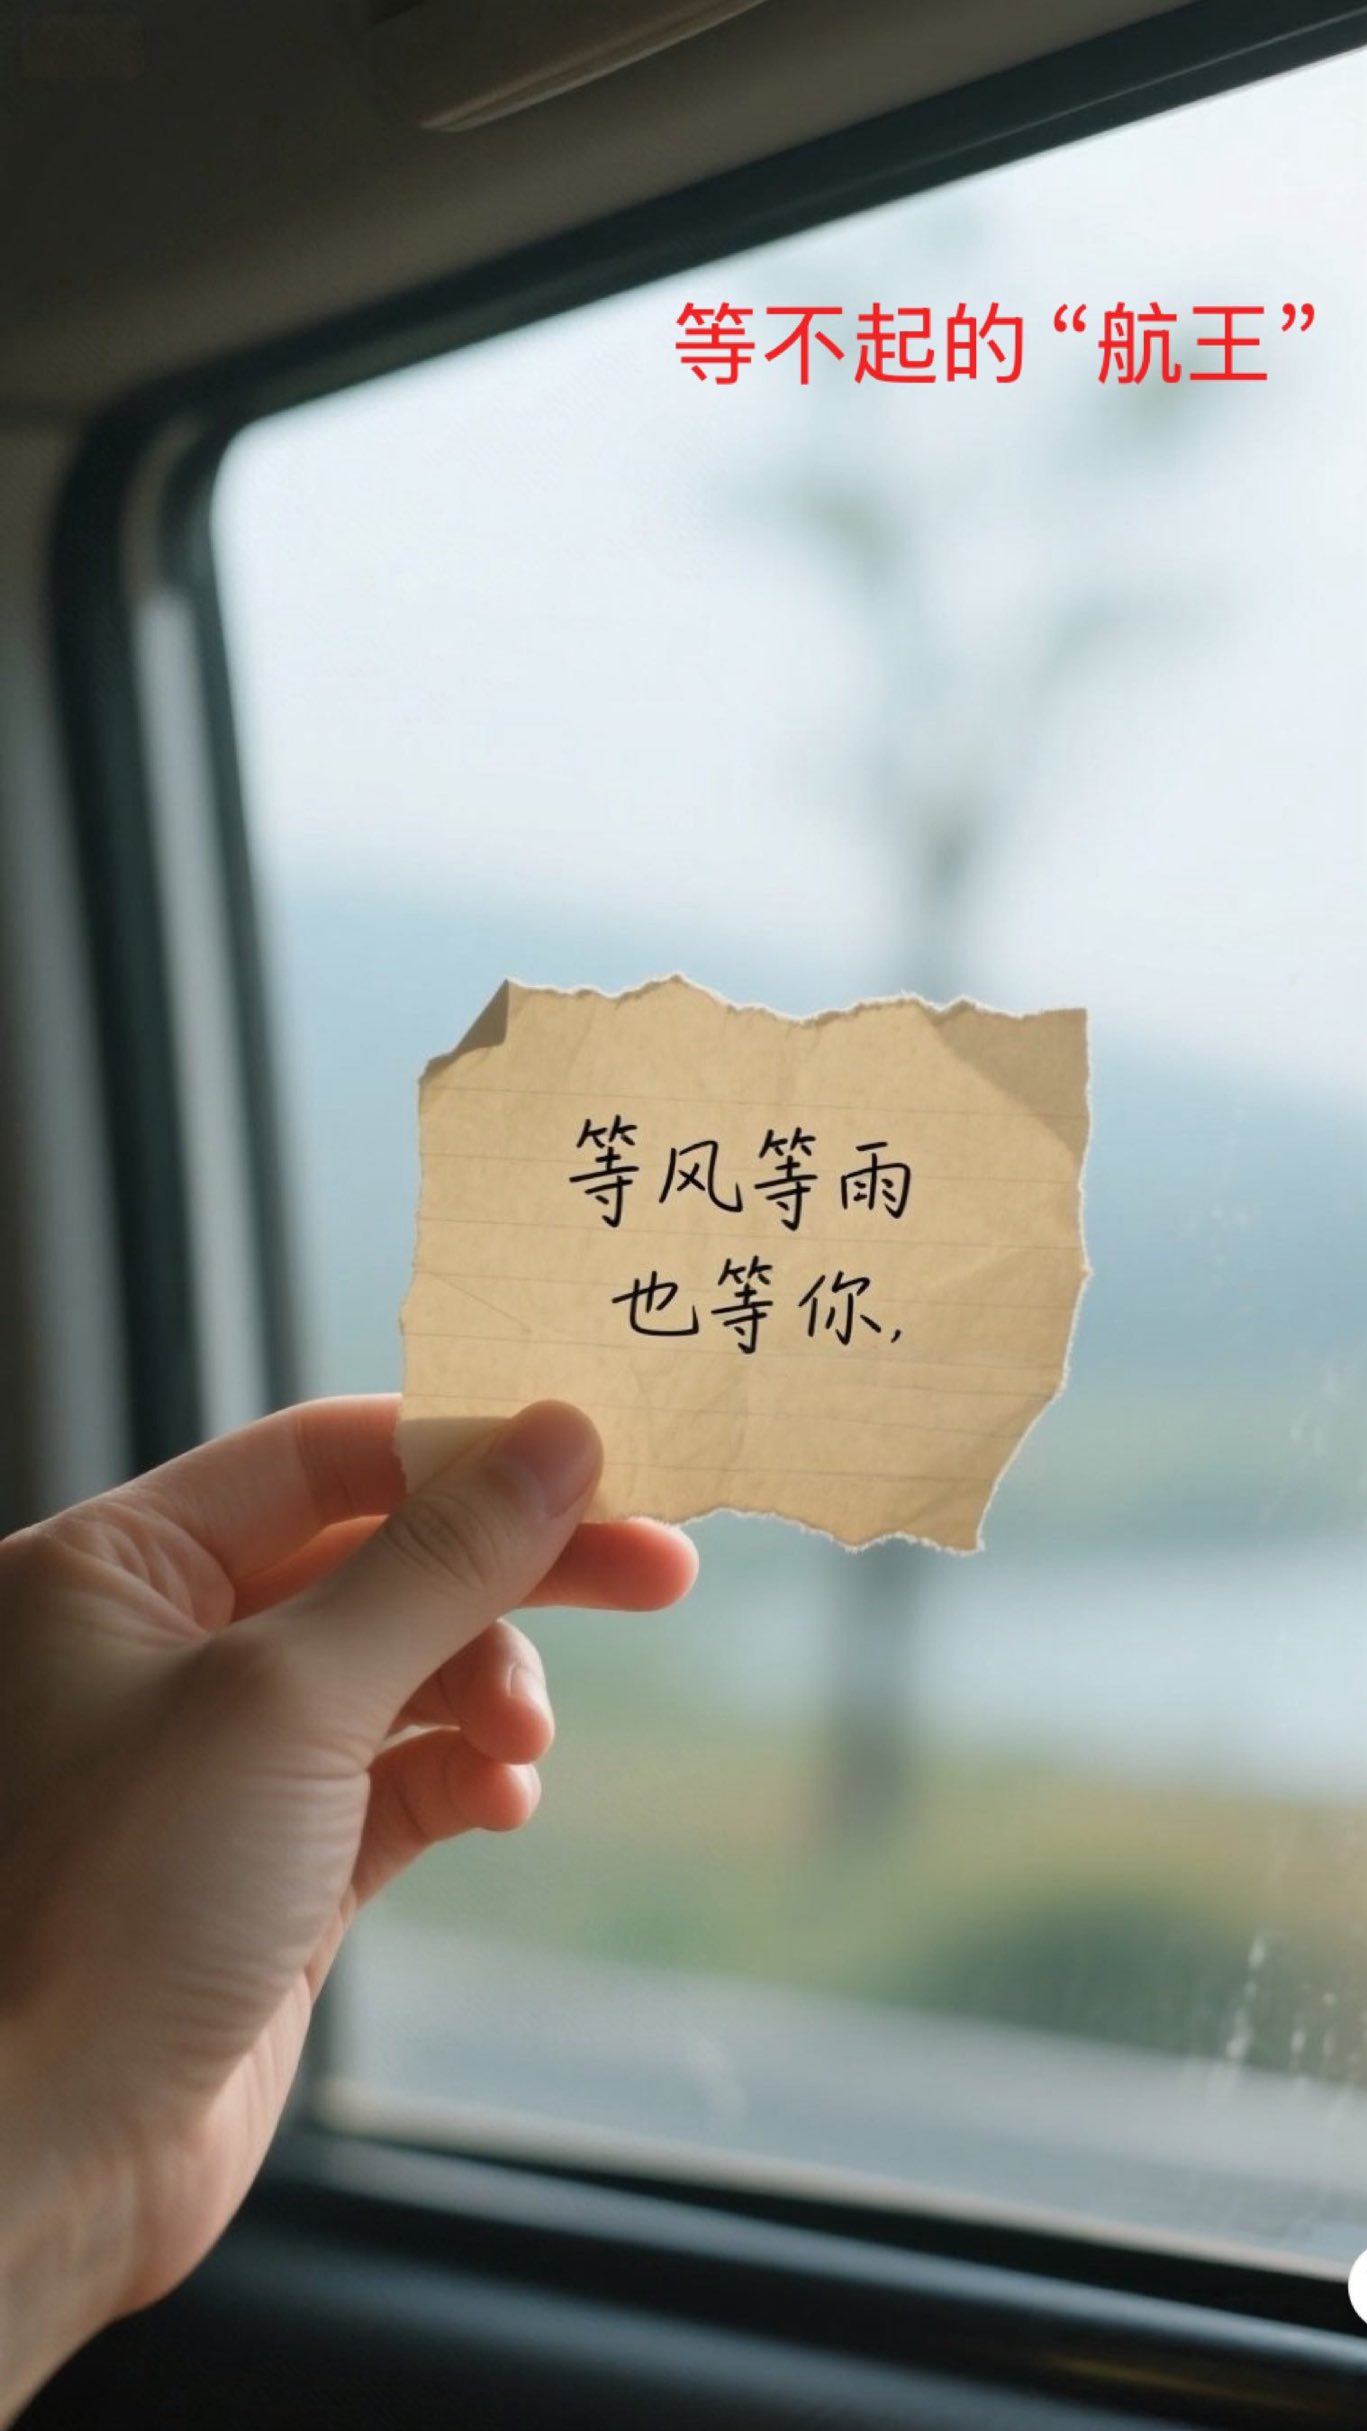 等不起的“航王”
等风等雨
也等你,